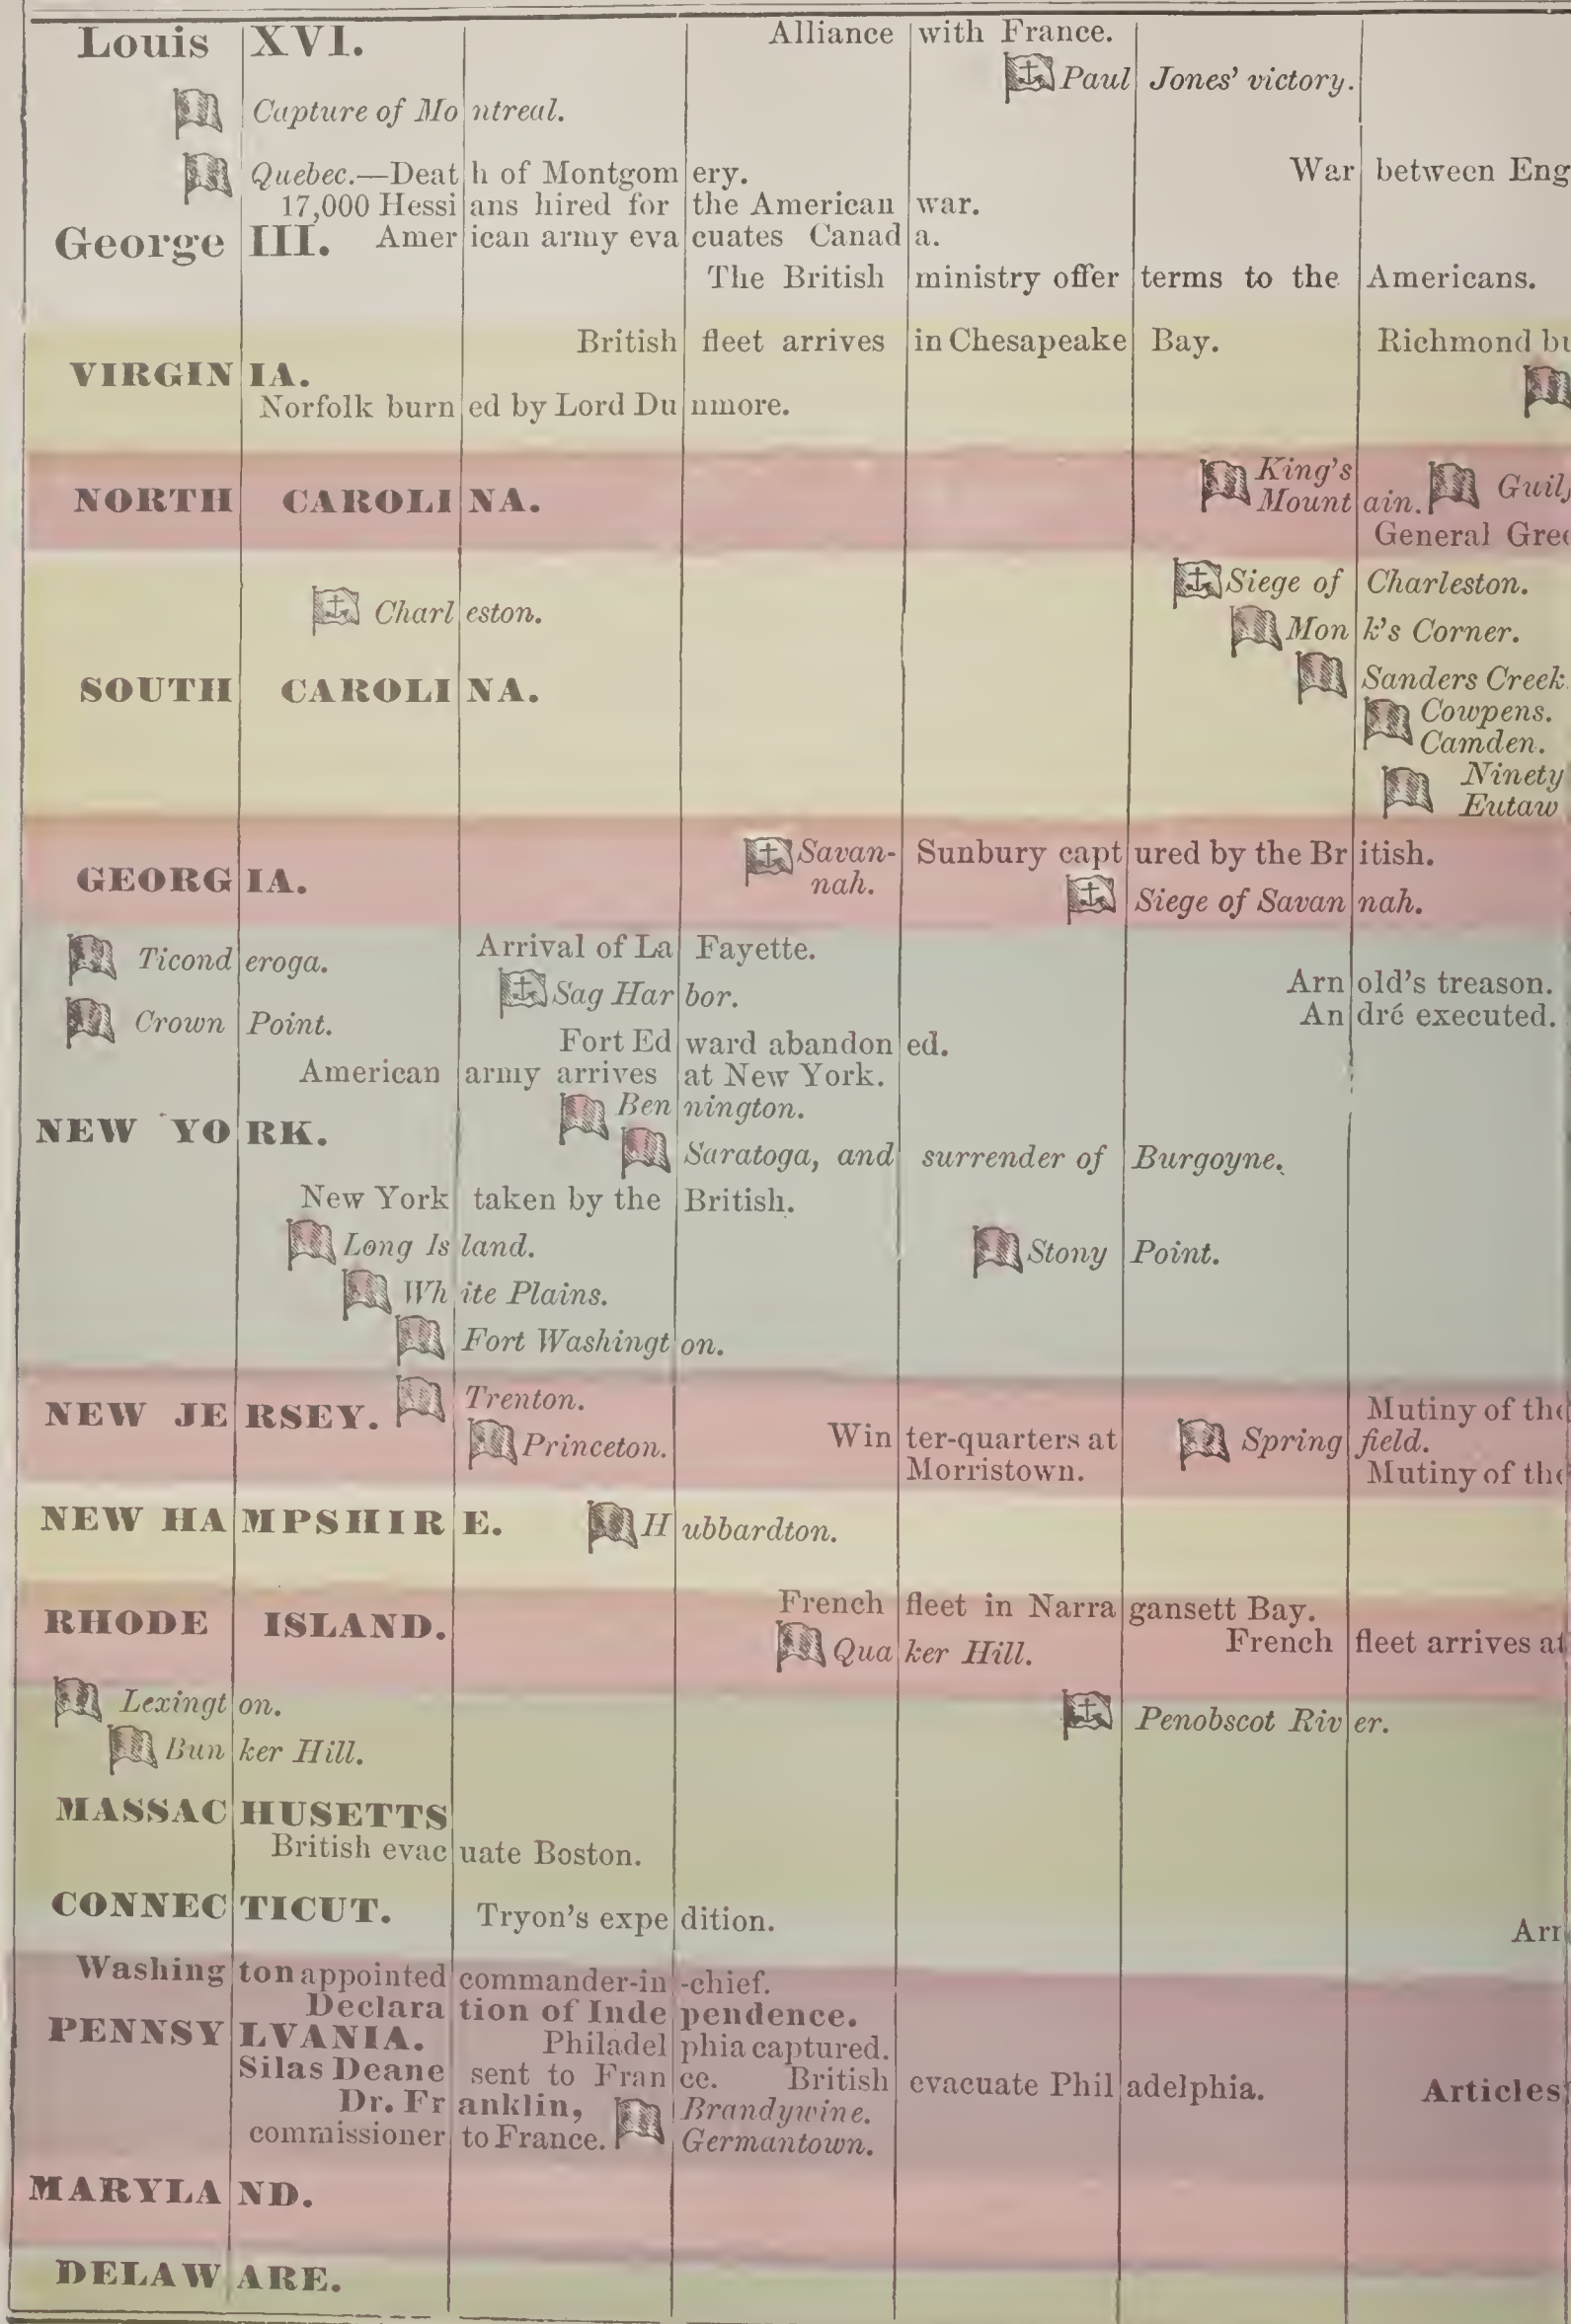 Louis XVI.
Alliance with France.
Paul Jones' victory.
Capture of Montreal.
Quebec.—Death of Montgomery.
War between Eng
17,000 Hessians hired for the American war.
George III.
American army evacuates Canada.
The British ministry offer terms to the Americans.
British fleet arrives in Chesapeake Bay.
Richmond bu
VIRGINIA.
Norfolk burned by Lord Dunmore.
King's
Mountain.
Guilf
NORTH CAROLINA.
General Gree
Siege of Charleston.
Charleston.
Monk's Corner.
SOUTH CAROLINA.
Sanders Creek.
Cowpens.
Camden.
Ninety
Eutaw
Savan-
nah.
Sunbury captured by the British.
GEORGIA.
Siege of Savannah.
Ticonderoga.
Arrival of La Fayette.
Sag Harbor.
Arnold's treason.
Crown Point.
André executed.
Fort Edward abandoned.
American army arrives at New York.
Bennington.
NEW YORK.
Saratoga, and surrender of Burgoyne.
New York taken by the British.
Long Island.
Stony Point.
White Plains.
Fort Washington.
NEW JERSEY.
Trenton.
Princeton.
Winter-quarters at
Morristown.
Mutiny of the
Springfield.
Mutiny of the
NEW HAMPSHIRE.
Hubbardton.
RHODE ISLAND.
French fleet in Narragansett Bay.
Quaker Hill.
French fleet arrives at
Lexington.
Penobscot River.
Bunker Hill.
MASSACHUSETTS
British evacuate Boston.
CONNECTICUT.
Tryon's expedition.
Arn
Washington appointed commander-in-chief.
Declaration of Independence.
PENNSYLVANIA.
Philadelphia captured.
Silas Deane sent to France.
British evacuate Philadelphia.
Articles
Dr. Franklin,
commissioner to France.
Brandywine.
Germantown.
MARYLAND.
DELAWARE.